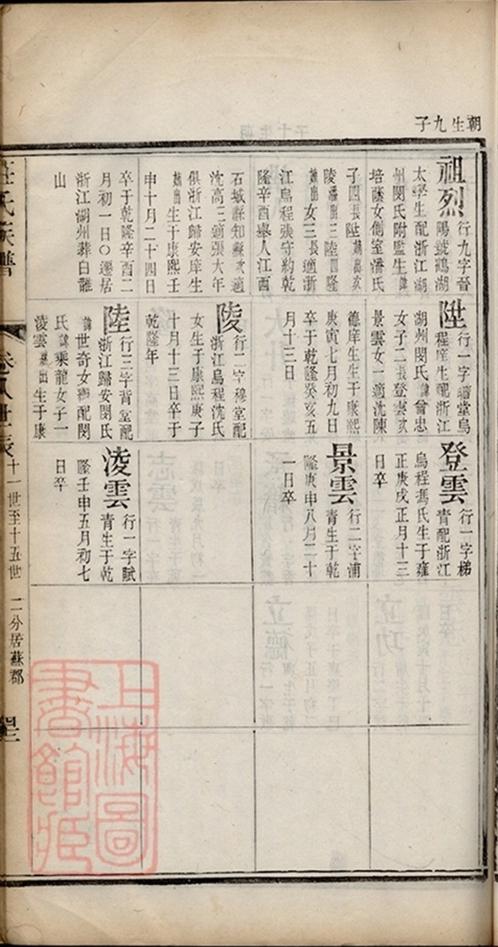 朝生九子
祖烈
行九字晉
賜號鶴湖
太學生配浙江湖
州閔氏附監生
培蔭女側室潘氏
子四長陞
陵
潘出三陸
出女三長適浙
江烏程張守約乾
隆辛酉舉人江西
石城縣知縣次適
沈高三適張大年
俱浙江歸安庠生
出生于康熙壬
申十月二十四日
卒于乾隆辛酉二
月高初一日〇遷居
浙江湖州葬白雞
山
陞
行一字
堂烏
程庠生配浙江
湖州閔氏
曾忠
女子二長登雲次
景雲女一適沈陳
德庠生生于康熙
庚寅七月初九日
卒于乾隆癸亥五
月十三日
陵
行二字穆堂配
浙江烏程沈氏
女生于康熙庚子
十月十三日卒于
乾隆年
陸
行三字
堂配
浙江歸安閔氏
世奇女
配閔
氏
乘龍女子一
淩雲
出生于康
登雲
行一字梯
青配浙江
烏程馮氏生于雍
正庚戌正月十三
日卒
景雲
行二字浦
青生于乾
隆庚申八月二十
一日卒
淩雲
行一字賦
青生于乾
隆壬申五月初七
日卒
莊氏族譜
卷八世表
十一世至十五世
二分居蘇郡
上海圖
書館藏